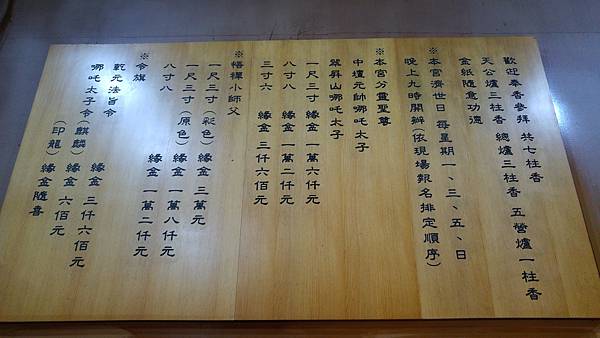 歡迎奉香參拜 共七柱香
天公爐三柱香 總爐三柱香 五營爐一柱香
金紙隨意功德
※本宮濟世日 每星期一、三、五、日
晚上九時開辦(依現場報名排定順序)
※本宮分靈聖尊
中壇元帥哪吒太子
翠屏山哪吒太子
一尺三寸 緣金 一萬六仟元
八寸八 緣金 一萬二仟元
三寸六 緣金 三仟六佰元
※悟禪小師父
一尺三寸(彩色) 緣金 三萬元
一尺三寸(原色) 緣金 一萬八仟元
八寸八 緣金 一萬二仟元
※令旗
乾元法旨令 緣金 三仟六佰元
哪吒太子令(麒麟) 緣金 六佰元
(印龍) 緣金隨喜